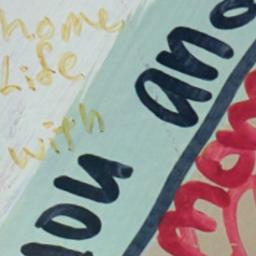 home
Life
with
you and